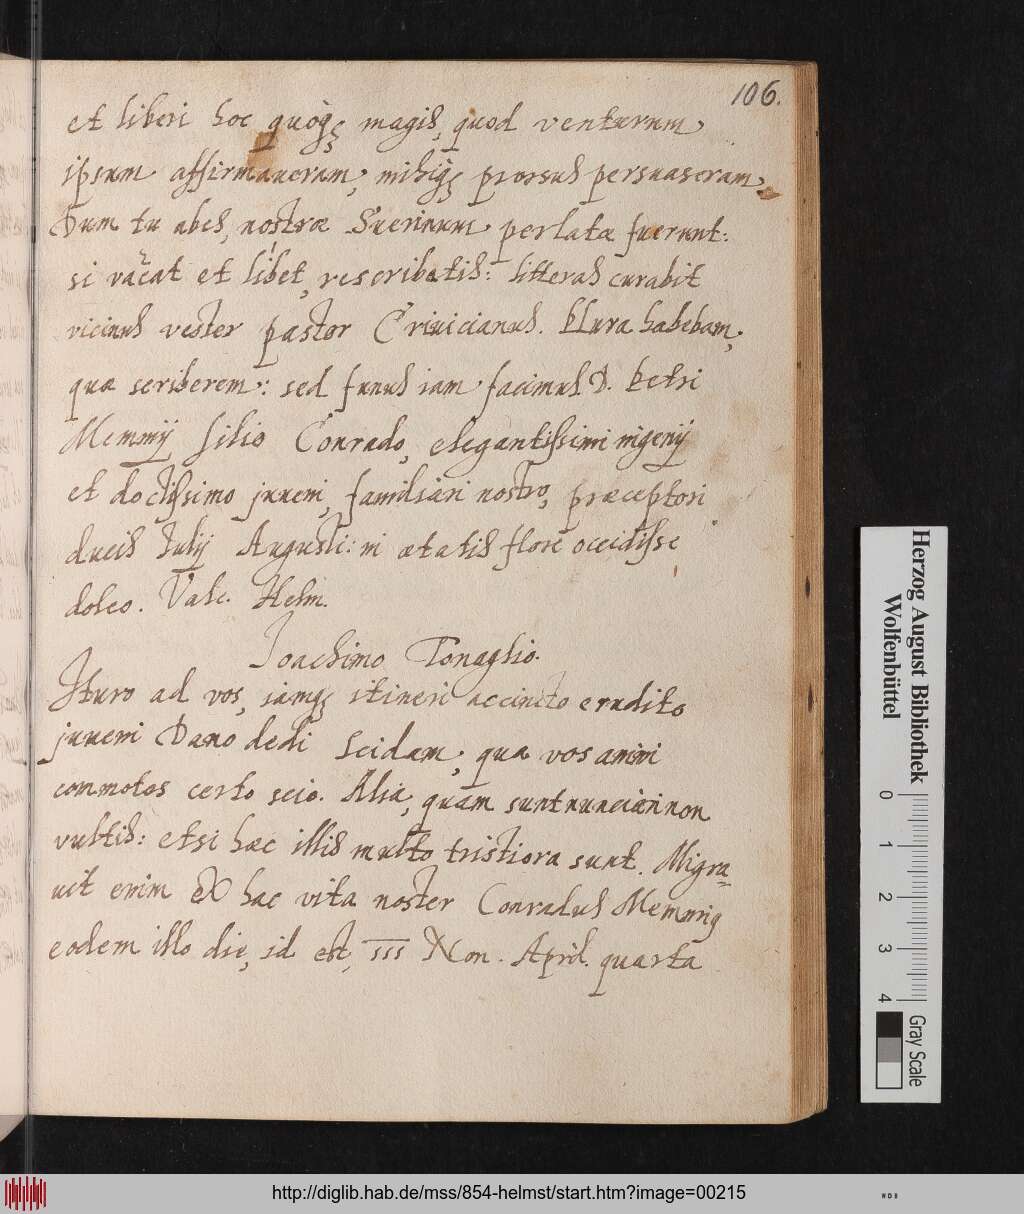 106.
et liberi hoc quoq; magis, quod venturum
ipsum affirmaueram, mihiq; prorsus persuaseram.
Dum tu abes, nostræ Suerinum perlatæ fuerunt:
si vacat et libet, rescribatis: litteras curabit
vicinus vester pastor Criuicianus. Plura habebam,
quæ scriberem: sed funus iam facimus D. Petri
Memmij filio Conrado, elegantissimi ingenij
et doctissimo juueni, familiari nostro, præceptori
ducis Julij Augusti: in ætatis flore occidisse
doleo. Vale. Helm.
Joachimo Tonaglio.
Ituro ad vos, iamq; itineri accincto erudito
juueni Dano dedi scidam, qua vos animi
commotos certo scio. Alia, quam sunt nunciari non
vultis: etsi hæc illis multo tristiora sunt. Migra-
uit enim ex hac vita noster Conradus Memmig
eodem illo die, id est, III Non. April. quarta
Herzog August Bibliothek
Wolfenbüttel
0 1 2 3 4
Gray Scale
http://diglib.hab.de/mss/854-helmst/start.htm?image=00215